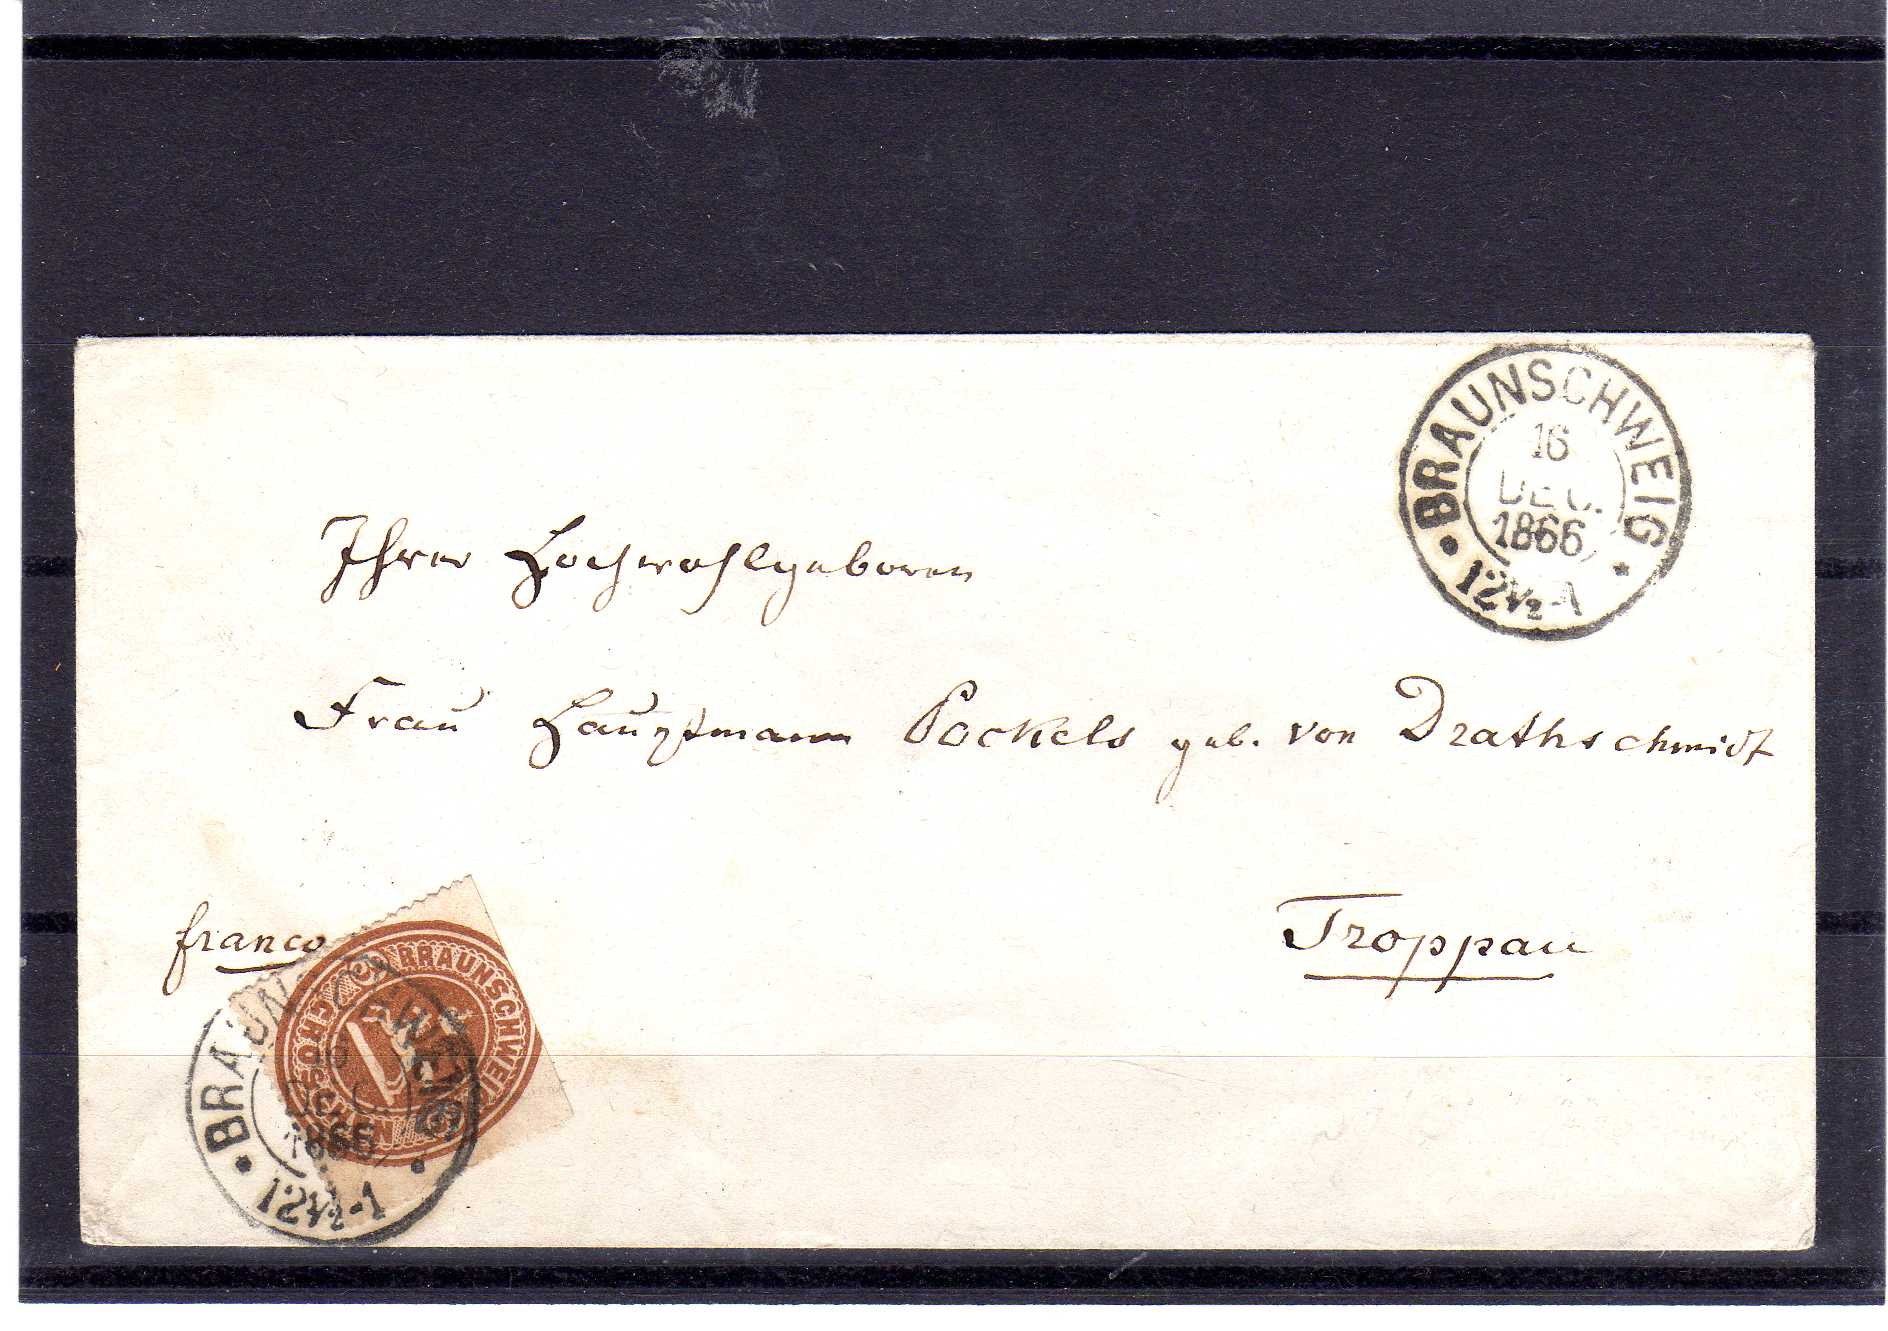 BRAUNSCHWEIG
16
DEC.
1866
12½-1
Ihrer Hochwohlgeboren
Frau Hauptmann Pockels geb. von Drathschmidt
franco
Troppau
BRAUNSCHWEIG
BRAUNSCHWEIG
DEC.
1866
12½-1